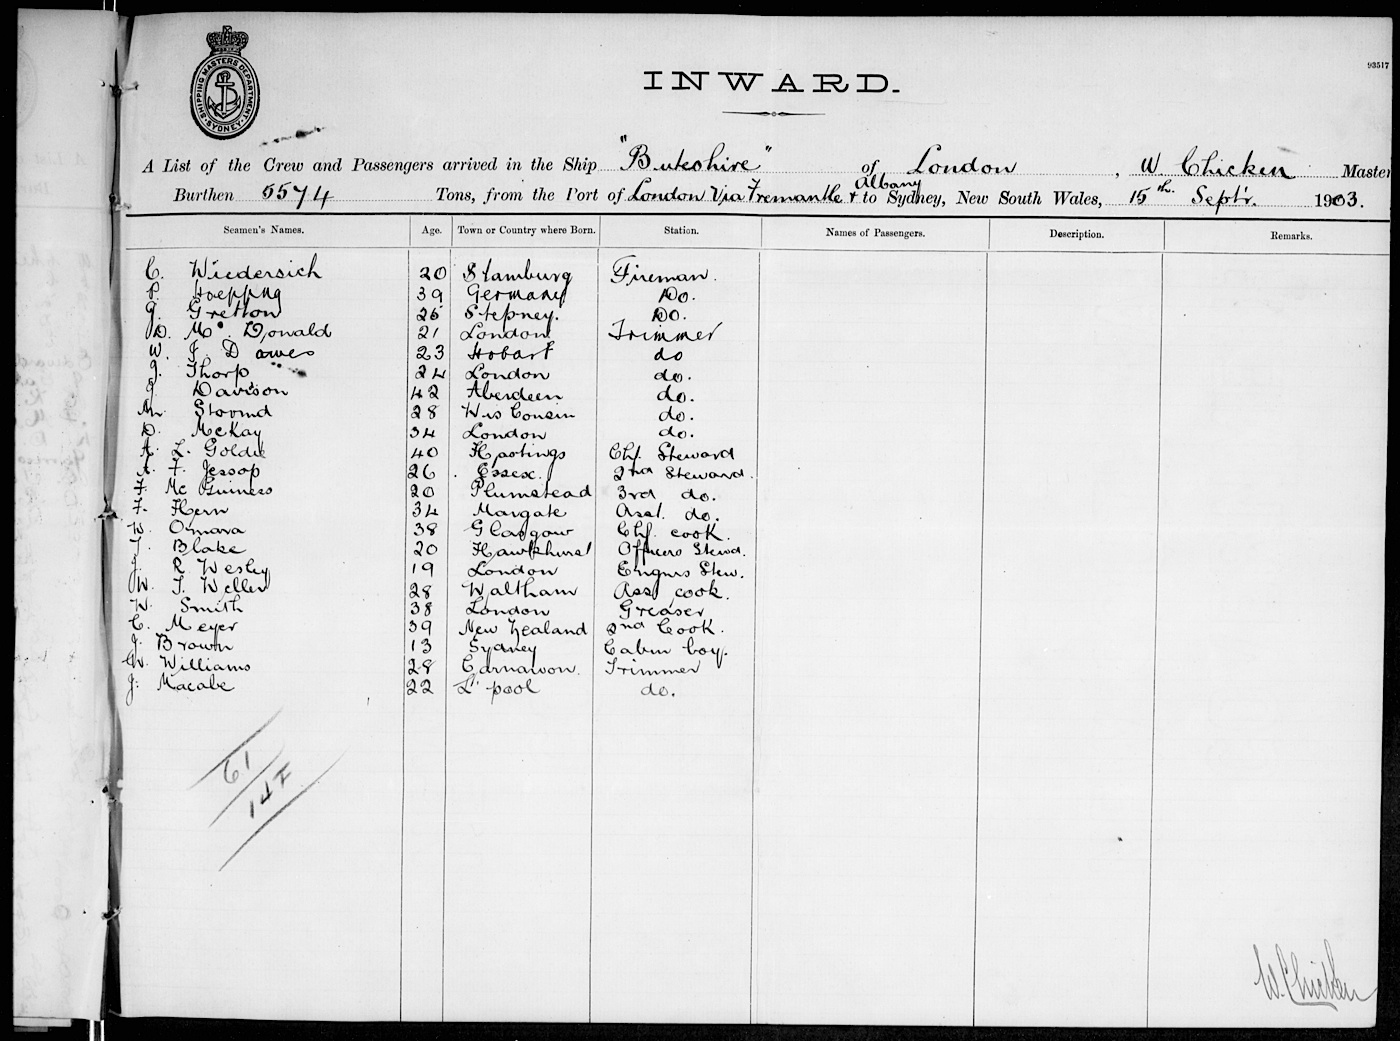 93517
SHIPPING MASTERS DEPARTMENT SYDNEY
INWARD.
A List of the Crew and Passengers arrived in the Ship "Buteshire" of London, W Chicken Master
Burthen 5574 Tons, from the Port of London Via Fremantle & Albany to Sydney, New South Wales, 15th Septr. 1903.
Seamen's Names. Age. Town or Country where Born. Station. Names of Passengers. Description. Remarks.
C. Wiedersich 20 Stamburg Fireman.
P. Hoepping 39 Germany Do.
J. Gretton 25 Stepney. Do.
D. Mc. Donald 21 London Trimmer
W. J. Dawes 23 Hobart do
J. Thorp 24 London do.
J. Davison 42 Aberdeen do.
28 Wis Consin do.
D. McKay 34 London do.
A. L. Goldie 40 Hastings Chf. Steward
A. F. Jessop 26 Essex. 2nd Steward
F. Mc Guiness 20 Plumstead 3rd do.
F. Hern 34 Margate Asst. do.
W. Omara 38 Glasgow Chf. cook.
T. Blake 20 Hawkhurst Officers Stewd.
J. R Wesley 19 London Engnrs Stew.
W. T. Weller 28 Waltham Ass cook.
W. Smith 38 London Greaser
C. Meyer 39 New Zealand 2nd Cook.
J. Brown 13 Sydney Cabin boy.
W. Williams 28 Carnarvon. Trimmer
J. Macabe 22 L'pool do.
61
147
W. Chicken